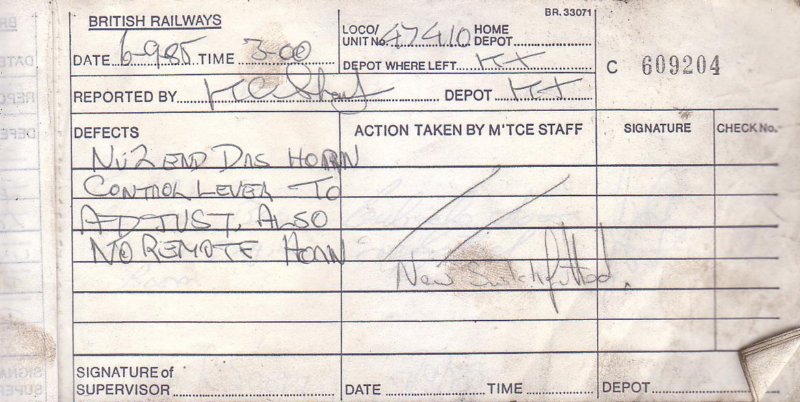 BR. 33071
BRITISH RAILWAYS
LOCO/ UNIT No. 47410 HOME DEPOT
DATE 6-9-85 TIME 3-00
DEPOT WHERE LEFT KX
C 609204
REPORTED BY DEPOT KX
DEFECTS
ACTION TAKEN BY M'TCE STAFF
SIGNATURE
CHECK No.
No2 END DAS HORN
CONTROL LEVER TO
ADJUST. ALSO
NO REMOTE HORN
New Switch fitted.
SIGNATURE of
SUPERVISOR
DATE TIME DEPOT